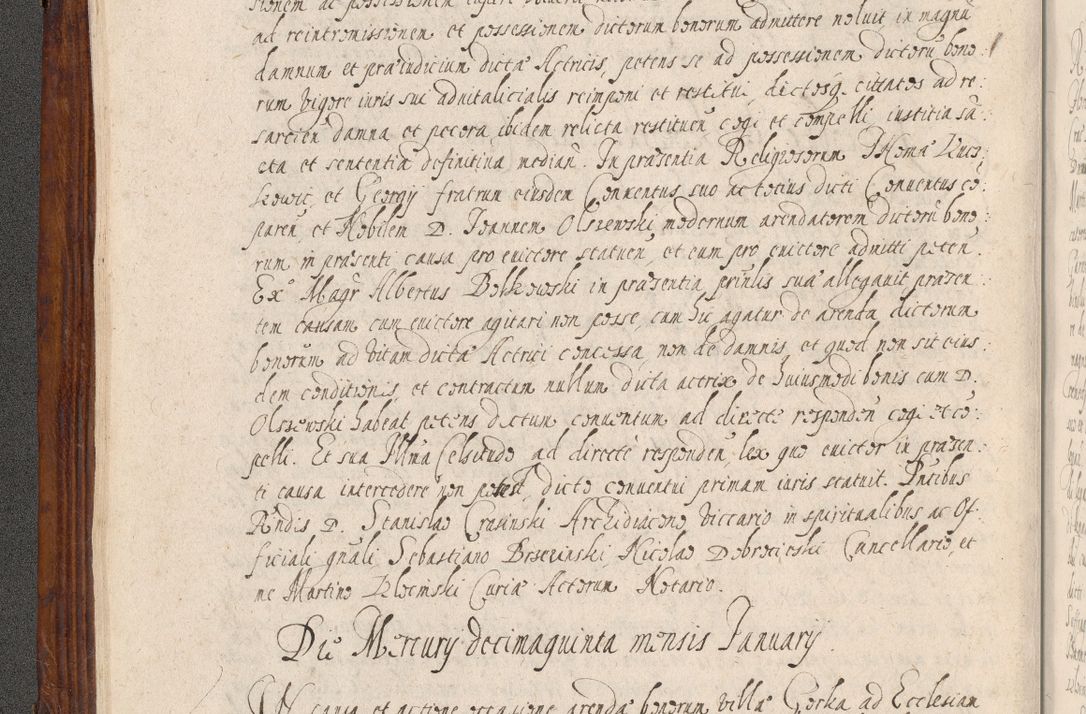 ad reintromissionem et possessionem dictorum bonorum admittere noluit in magnū
damnum et præiudicium dictæ Actricis, petens se ad possessionem dictorū bono:
rum vigore iuris sui aduitalicialis reimponi et restitui, dictosq citatos ad re:
sarcien damna et pecora ibidem relicta restituen cogi et compelli iustitia sua
et sententia definitiua median. In præsentia Religiosorum Thomæ
et Georgij fratrum eiusdem Conuentus, suo ac totius dicti Conuentus cō:
paren, et Nobilem D. Ioannem Olszewski modernum arendatorem dictorū bono:
rum in præsenti causa pro euictore statuen, et eum pro euictore admitti peten.
Ex° Magr Albertus Bolkowski in præsentia prinlis suæ allegauit præsen
tem causam cum euictore agitari non posse, cum hic agatur de arenda dictorum
bonorum ad vitam dictæ Actrici concessa, non de damnis, et quod non sit eius:
dem conditionis, et contractum nullum dicta actrix de huiusmodi bonis cum D.
Olszewski habeat petens dictum conuentum ad directe responden cogi et cō:
pelli. Et sua Illma Celsitudo ad directe responden, lex quo euictor in præsen:
ti causa intercedere non potest, dicto conuentui primam iuris statuit. Pntibus
Rndis D. Stanislao Crasinski Archidiacono Viccario in spiritualibus ac Of:
ficiali gnali, Sebastiano Nicolao Dobrocieski Cancellario, et
me Martino Curiæ Actorum Notario.
Die Mercurij decimaquinta mensis Januarij.
IN causa et actione occasione arendæ bonorum villæ Gorka ad Ecclesiam